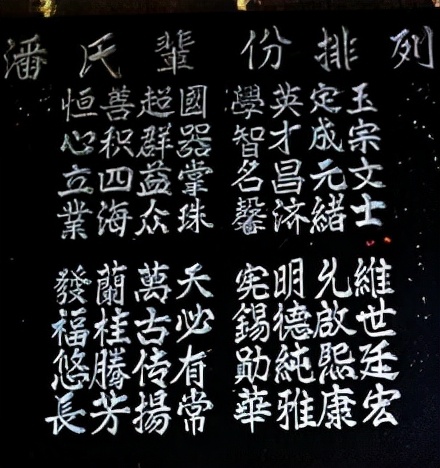 潘氏輩份排列
玉宗文士
定成元緒
英才昌济
學智名馨
國器掌珠
超群益众
善积四海
恒心立業
維世廷宏
允啟熙康
明德純雅
宪錫勛華
天必有常
萬古传揚
蘭桂騰芳
發福悠長